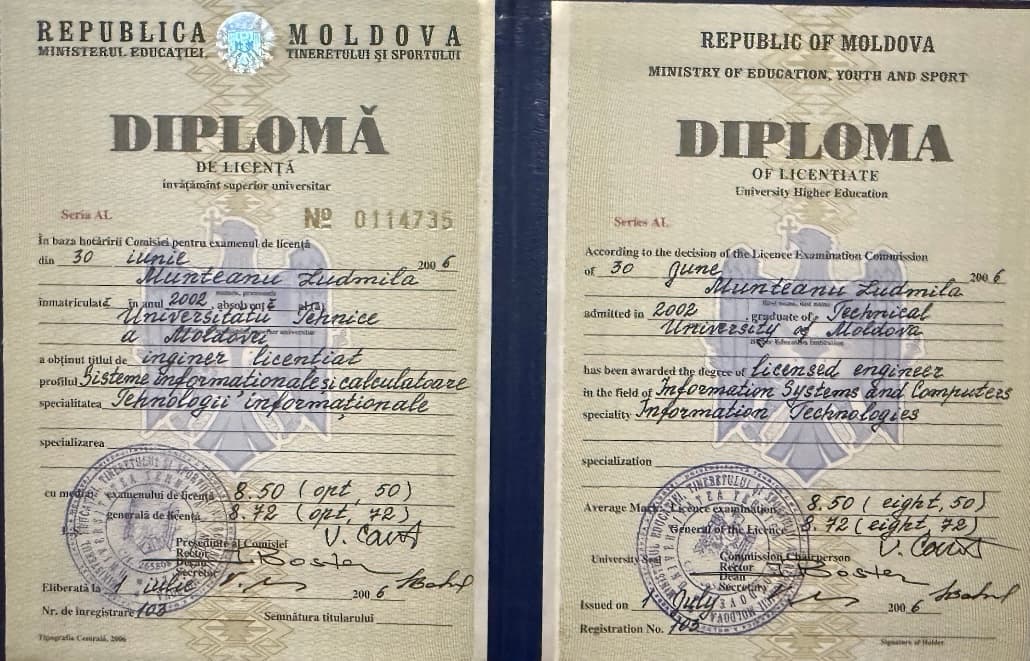 REPUBLICA MOLDOVA
MINISTERUL EDUCAŢIEI, TINERETULUI ŞI SPORTULUI
DIPLOMĂ
DE LICENŢĂ
învăţămînt superior universitar
Seria AL № 0114735
În baza hotărîrii Comisiei pentru examenul de licenţă
din 30 iunie 2006
Munteanu Ludmila
înmatriculată în anul 2002, absolventă
Universitatii Tehnice
a Moldovei
a obţinut titlul de inginer licentiat
profilul Sisteme informationale si calculatoare
specialitatea Tehnologii informaţionale
specializarea
cu media: examenului de licenţă 8.50 (opt, 50)
generală de licenţă 8.72 (opt, 72)
Preşedinte al Comisiei
Rector
Decan
Secretar
Eliberată la 1 iulie 2006
Nr. de înregistrare 103 Semnătura titularului
Tipografia Centrală, 2006
REPUBLIC OF MOLDOVA
MINISTRY OF EDUCATION, YOUTH AND SPORT
DIPLOMA
OF LICENTIATE
University Higher Education
Series AL
According to the decision of the Licence Examination Commission
of 30 June 2006
Munteanu Ludmila
admitted in 2002 graduate of Technical
University of Moldova
has been awarded the degree of licensed engineer
in the field of Information Systems and Computers
speciality Information Technologies
specialization
Average Mark: Licence examination 8.50 (eight, 50)
General of the Licence 8.72 (eight, 72)
University Seal Commission Chairperson
Rector
Dean
Secretary
Issued on 1 July 2006
Registration No. 103
Signature of Holder